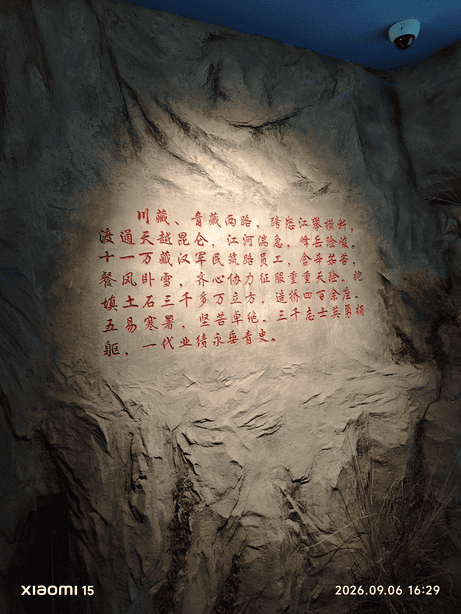 川藏、青藏两路，跨怒江攀横断，
渡通天越昆仑，江河湍急，峰岳险峻。
十一万藏汉军民筑路员工，含辛茹苦，
餐风卧雪，齐心协力征服重重天险。挖
填土石三千多万立方，造桥四百余座。
五易寒暑，坚苦卓绝。三千志士英勇捐
躯，一代业绩永垂青史。
xiaomi 15
2026.09.06 16:29